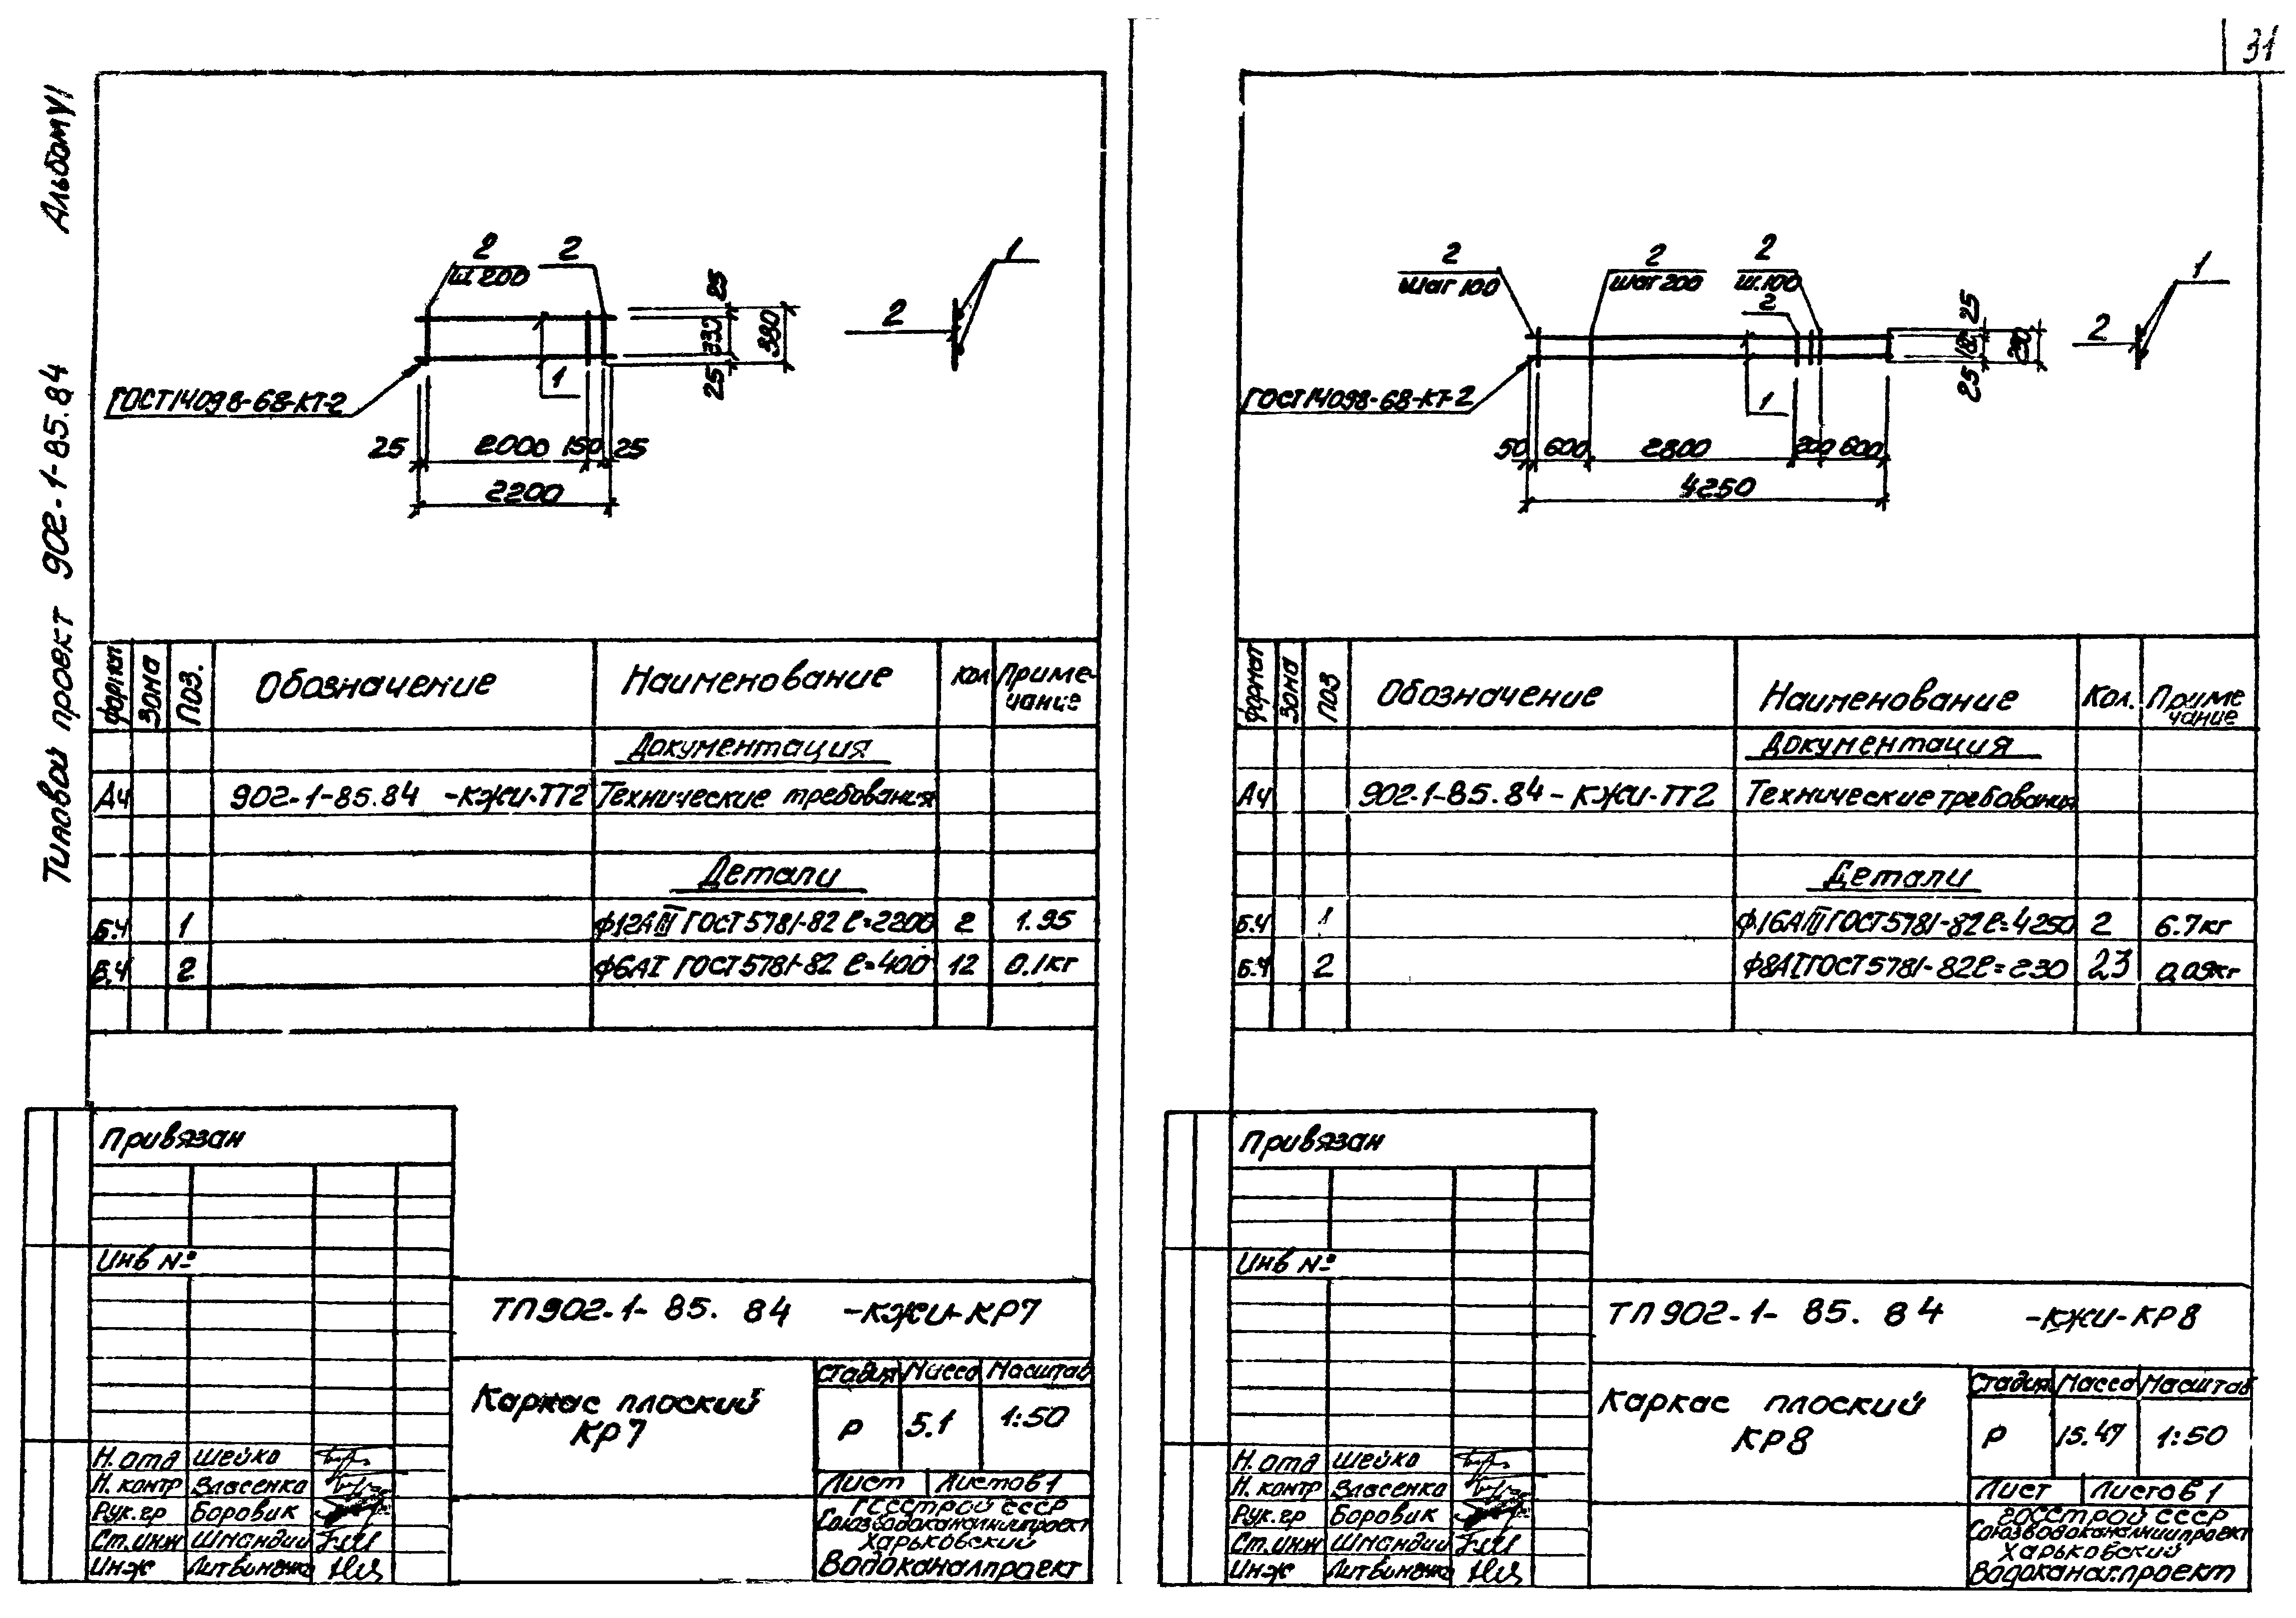 31
Альбом VI
Типовой проект 902-1-85.84
2
ш.200
2
25
330
25
380
1
2
1
ГОСТ14098-68-КТ-2
25
2000
150
25
2200
формат
Зона
Поз.
Обозначение
Наименование
Кол
Приме-
чание
Документация
А4 902-1-85.84 -КЖИ-ТТ2 Технические требования
Детали
Б.Ч 1 ф12АIII ГОСТ5781-82 ℓ=2200 2 1.95
Б.Ч 2 ф6АI ГОСТ5781-82 ℓ=400 12 0.1кг
Привязан
Инв №
ТП902-1-85.84 -КЖИ-КР7
Каркас плоский
КР7
Стадия Масса Масштаб
Р 5.1 1:50
Лист Листов 1
Госстрой СССР
Союзводоканалниипроект
Харьковский
Водоканалпроект
Н.отд Шейко
Н.контр Власенко
Рук.гр Боровик
Ст.инж Шмандий
Инж Литвиненко
2
шаг 100
2
шаг 200
2
ш.100
2
25
180
25
230
1
2
1
ГОСТ14098-68-КТ-2
50
600
2800
200
600
4250
формат
Зона
Поз
Обозначение
Наименование
Кол.
Приме
чание
Документация
А4 902-1-85.84-КЖИ-ТТ2 Технические требования
Детали
Б.Ч 1 ф16АIII ГОСТ5781-82 ℓ=4250 2 6.7кг
Б.Ч 2 ф8АI ГОСТ5781-82 ℓ=230 23 0,09кг
Привязан
Инв №
ТП902-1-85.84 -КЖИ-КР8
Каркас плоский
КР8
Стадия Масса Масштаб
Р 15.47 1:50
Лист Листов 1
Госстрой СССР
Союзводоканалниипроект
Харьковский
Водоканалпроект
Н.отд Шейко
Н.контр Власенко
Рук.гр Боровик
Ст.инж Шмандий
Инж Литвиненко